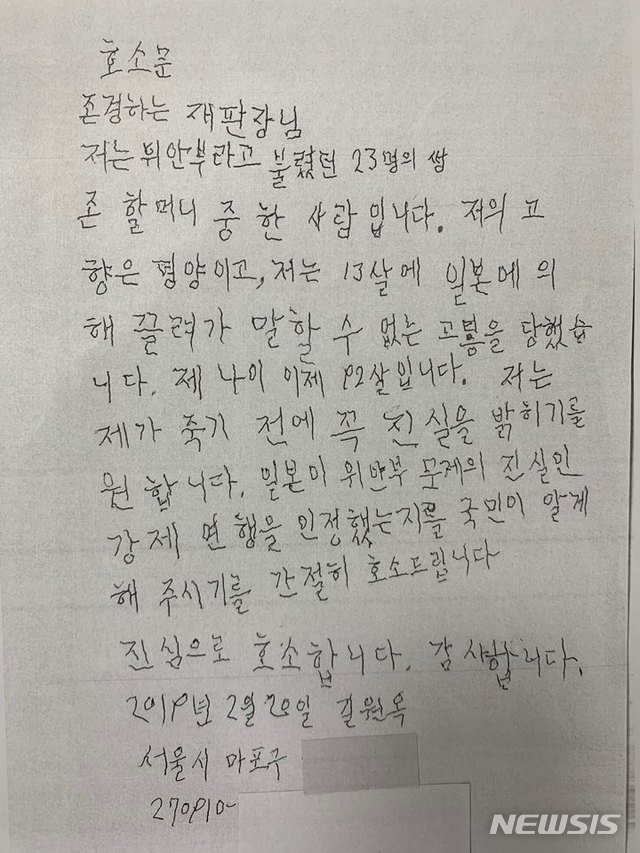 호소문
존경하는 재판장님
저는 위안부라고 불렸던 23명의 쌩
존 할머니 중 한 사람입니다. 저의 고
향은 평양이고, 저는 13살에 일본에 의
해 끌려가 말할 수 없는 고통을 당했습
니다. 제 나이 이제 92살입니다. 저는
제가 죽기 전에 꼭 진실을 밝히기를
원합니다. 일본이 위안부 문제의 진실인
강제 연행을 인정했는지를 국민이 알게
해 주시기를 간절히 호소드립니다
진심으로 호소합니다. 감사합니다.
2019년 2월 20일 길원옥
서울시 마포구
270910-
NEWSIS